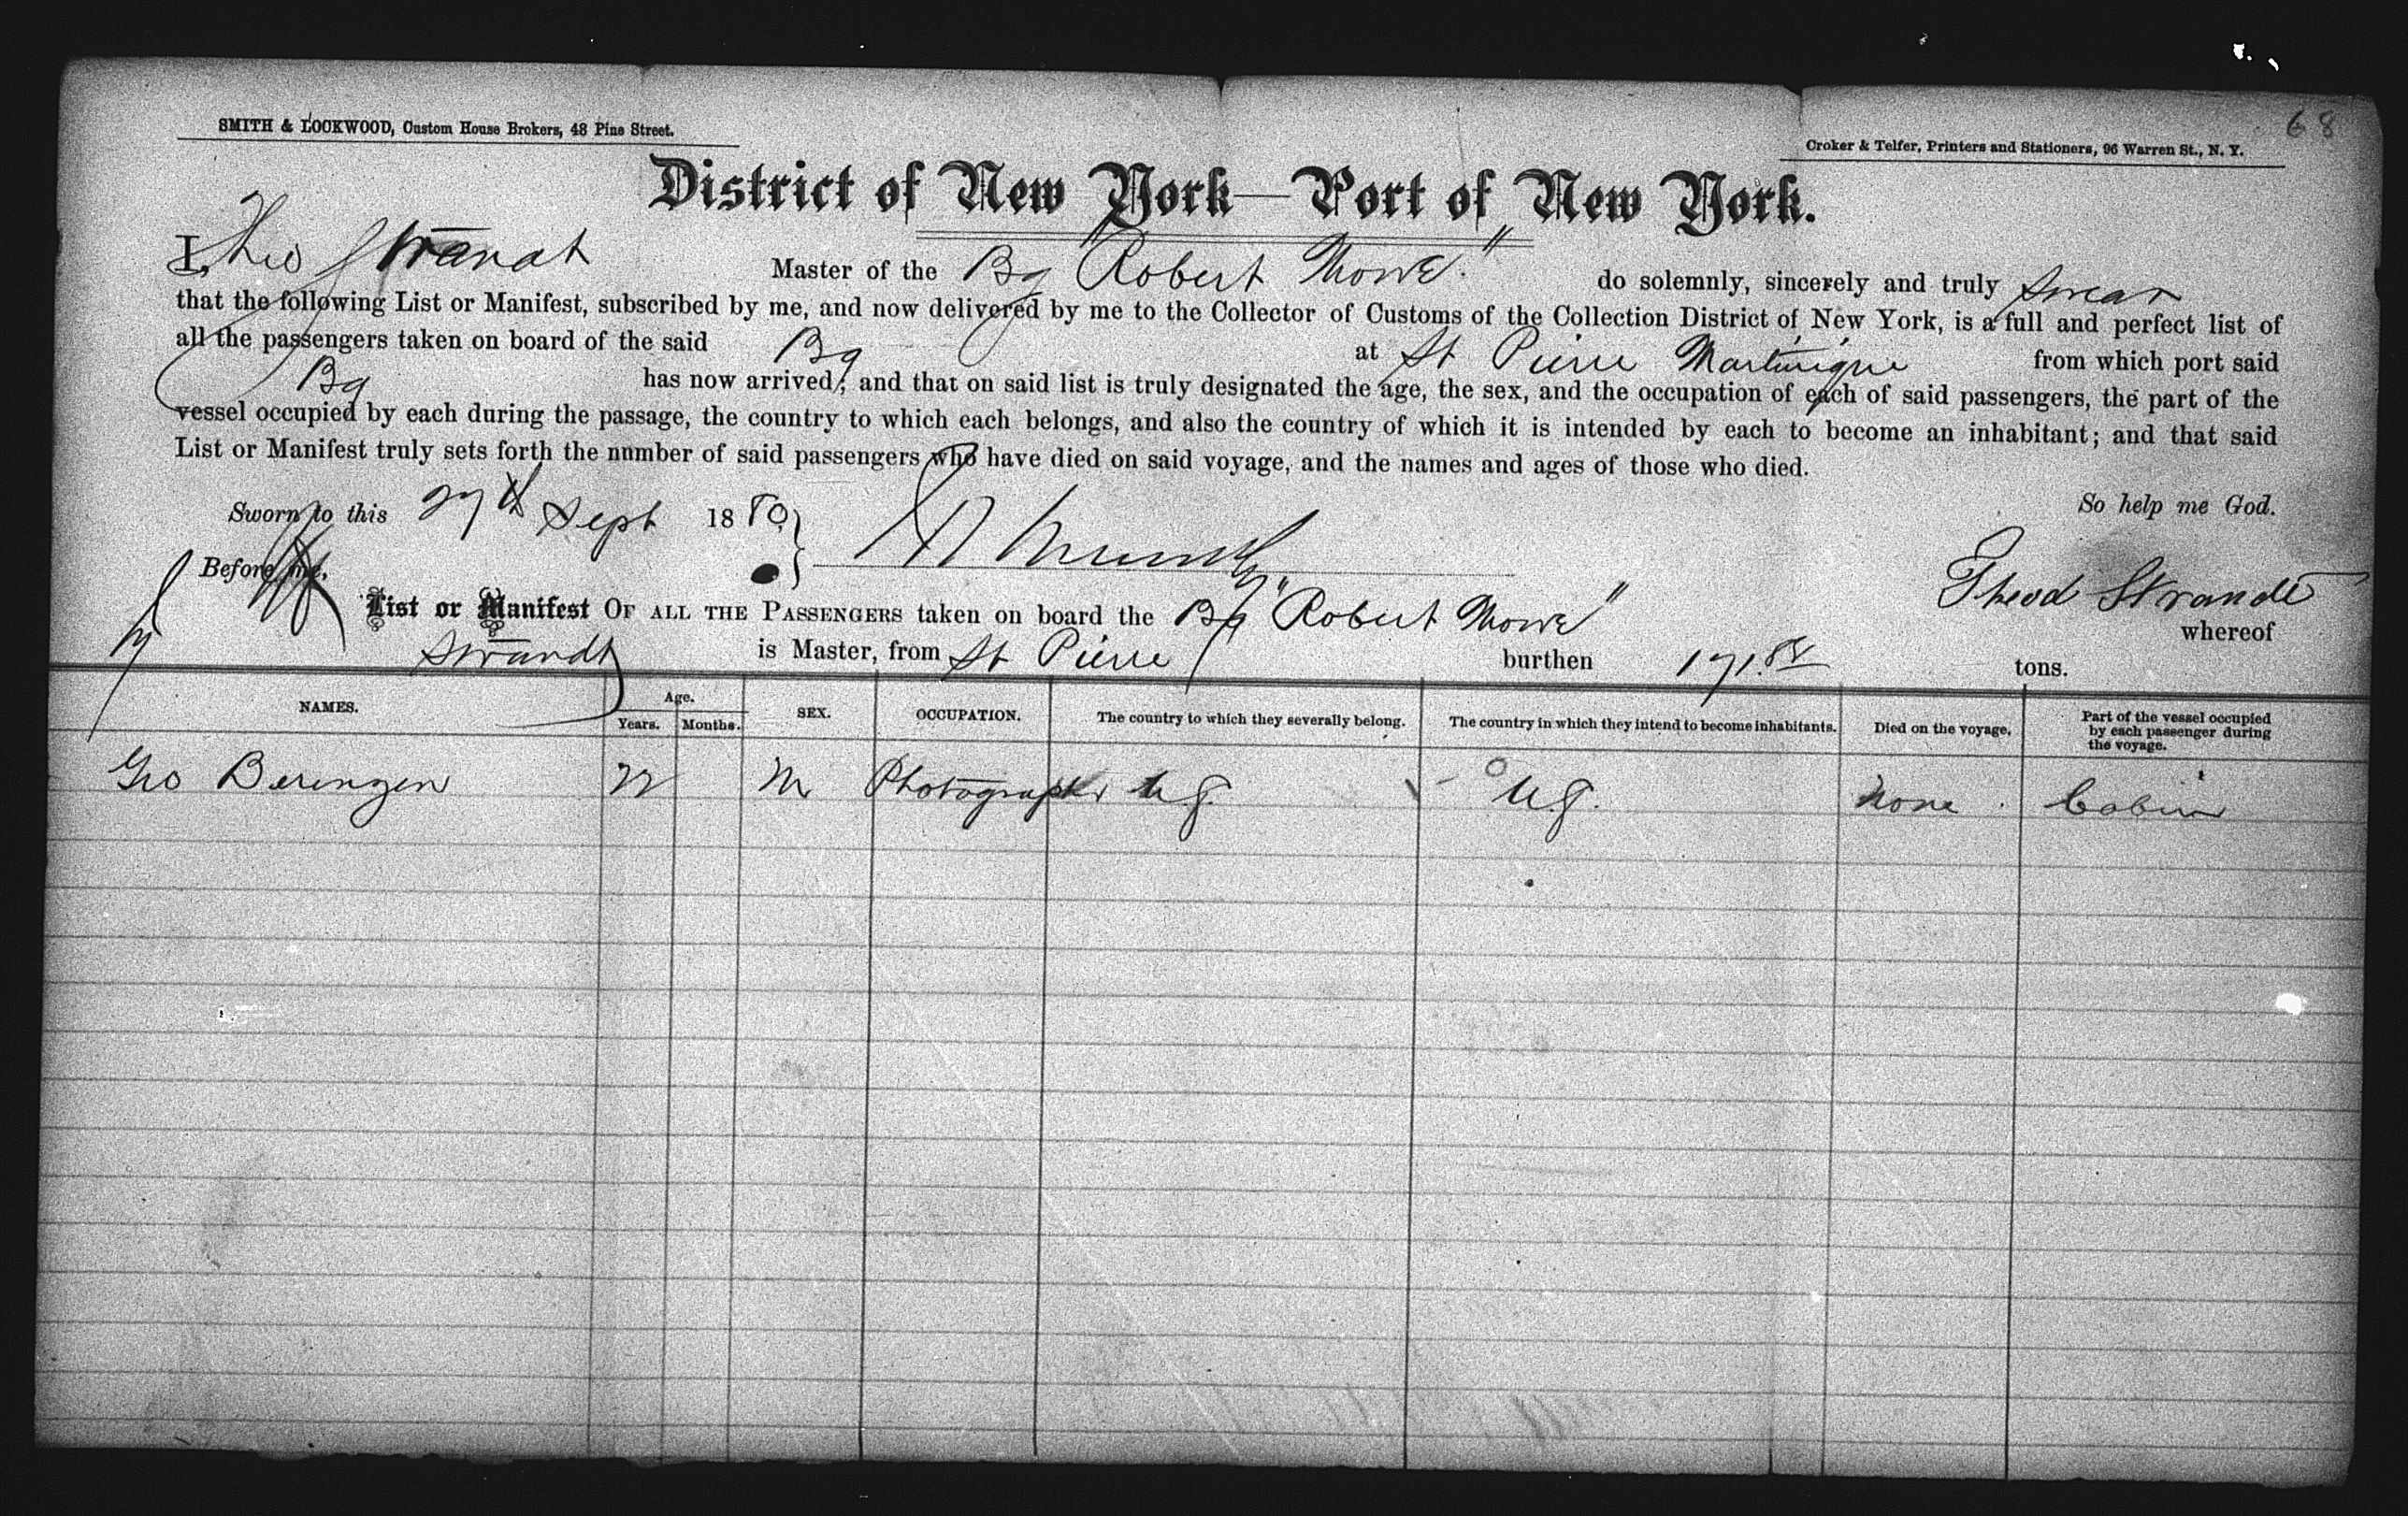 68
SMITH & LOCKWOOD, Custom House Brokers, 48 Pine Street.
Croker & Telfer, Printers and Stationers, 96 Warren St., N. Y.
District of New York—Port of New York.
I, Theo Strandt Master of the Bg "Robert Mowe" do solemnly, sincerely and truly swear
that the following List or Manifest, subscribed by me, and now delivered by me to the Collector of Customs of the Collection District of New York, is a full and perfect list of
all the passengers taken on board of the said Bg at St Pierre Martinique from which port said
Bg has now arrived; and that on said list is truly designated the age, the sex, and the occupation of each of said passengers, the part of the
vessel occupied by each during the passage, the country to which each belongs, and also the country of which it is intended by each to become an inhabitant; and that said
List or Manifest truly sets forth the number of said passengers who have died on said voyage, and the names and ages of those who died.
So help me God.
Sworn to this 27th Sept 1880
Before me,
Theod Strandt
List or Manifest OF ALL THE PASSENGERS taken on board the Bg "Robert Mowe" whereof
Strandt is Master, from St Pierre burthen 171.88 tons.
NAMES. Age. Years. Months. SEX. OCCUPATION. The country to which they severally belong. The country in which they intend to become inhabitants. Died on the voyage. Part of the vessel occupied by each passenger during the voyage.
Geo Beringen M Photographer U.S. U.S. None Cabin